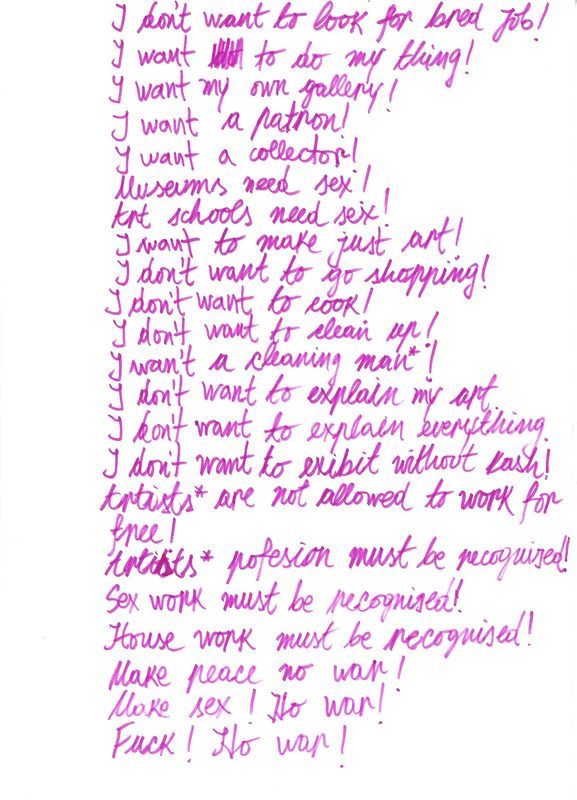 I don't want to look for bred job!
I want to do my thing!
I want my own gallery!
I want a patron!
I want a collector!
Museums need sex!
Art schools need sex!
I want to make just art!
I don't want to go shopping!
I don't want to cook!
I don't want to clean up!
I wan't a cleaning man*!
I don't want to explain my art
I don't want to explain everything
I don't want to exibit without kash!
Artists* are not allowed to work for
free!
Artists* pofesion must be recognised!
Sex work must be recognised!
House work must be recognised!
Make peace no war!
Make sex! No war!
Fuck! No war!